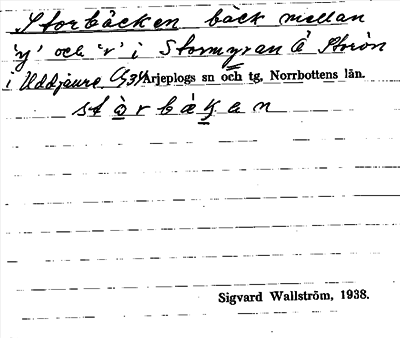 Storbäcken bäck mellan
'y' och 'r' i Stormyran Å Storön
i Uddjaure Arjeplogs sn och tg, Norrbottens län.
Sigvard Wallström, 1938.